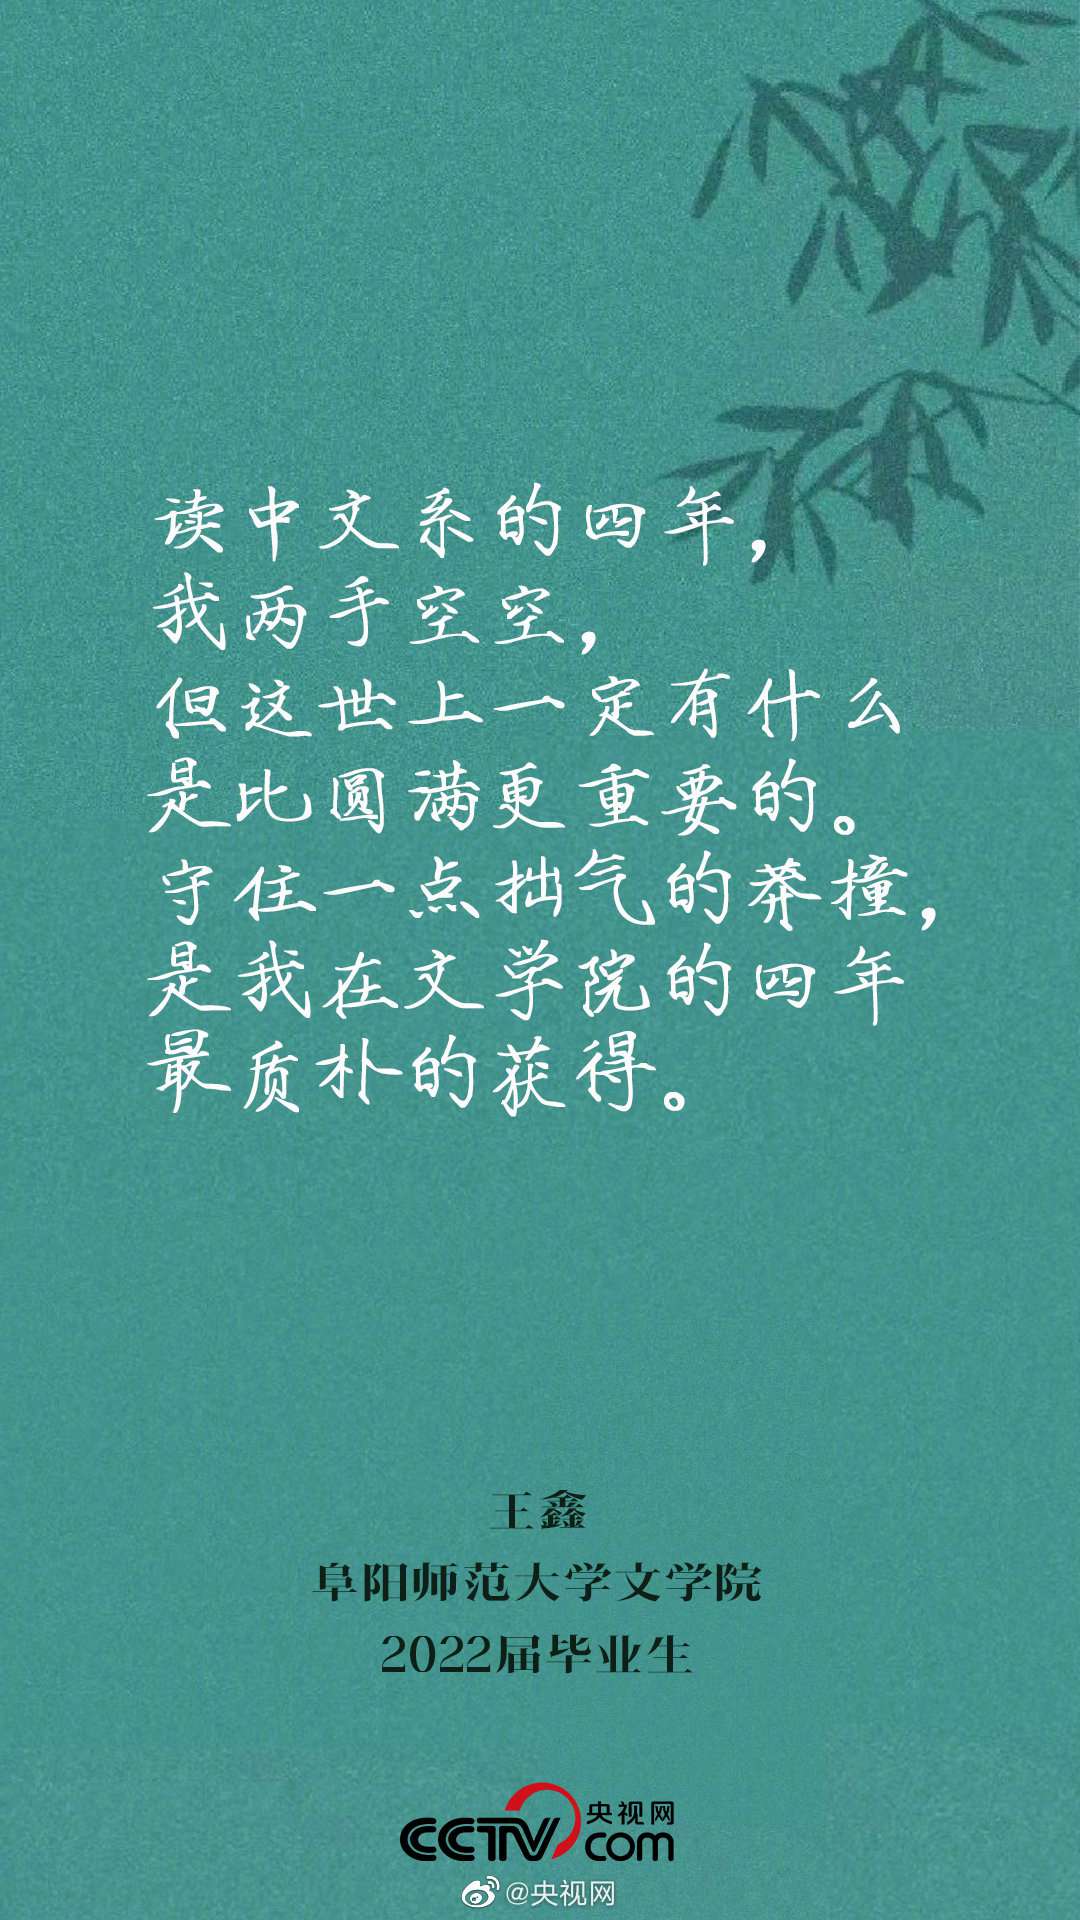 读中文系的四年，
我两手空空，
但这世上一定有什么
是比圆满更重要的。
守住一点拙气的莽撞，
是我在文学院的四年
最质朴的获得。
王鑫
阜阳师范大学文学院
2022届毕业生
CCTV央视网
com
@央视网